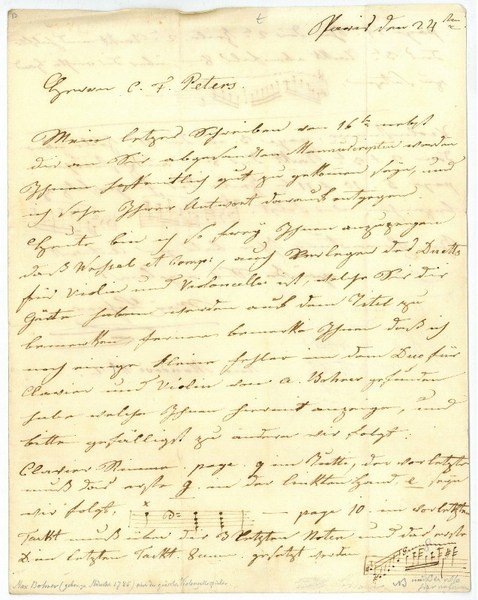 Paris den 24
Herren C. F. Peters
Mein letzes Schreiben vom 16ten nebst
die an Sie abgesandten Manuscripte werden
Ihnen hoffentlich gut zu gekomen seyn, und
ich sehe Ihrer Antwort darauf entgegen
Heute bin ich so frey Ihnen anzuzeigen
daß Wessel et Comp: auch Verleger des Duetts
für Violin und Violoncello ist, welches Sie die
Güte haben werden auf dem Titel zu
bemerken, ferner bemerke Ihnen daß ich
noch einige kleine Fehler in dem Duo für
Clavier und Violin von A. Bohrer gefunden
habe welche Ihnen hiermit anzeige, und
bitte gefälligst zu ändern wie folgt:
Clavier Stimme page 9 im Takte, der vorletzte
muß das erste g in der linken Hand e seyn
wie folgt, — page 10. im vorletzten
Takt muß über die 3 letzten Noten und das erste
im letzten Takt 8va gesetzt werden
Max Bohrer (geb. München 1785)
NB